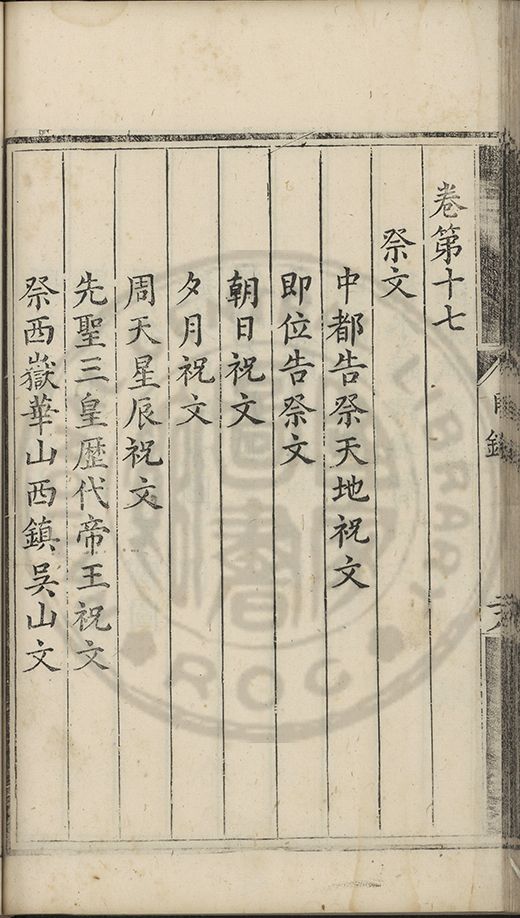 卷第十七
祭文
中都告祭天地祝文
即位告祭文
朝日祝文
夕月祝文
周天星辰祝文
先聖三皇歷代帝王祝文
祭西嶽華山西鎮吳山文